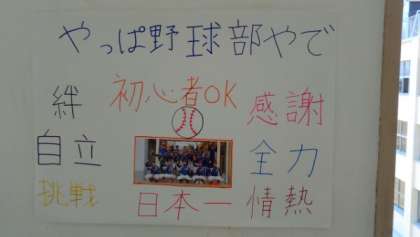 やっぱ野球部やで
初心者OK
絆
感謝
自立
全力
挑戦
日本一
情熱